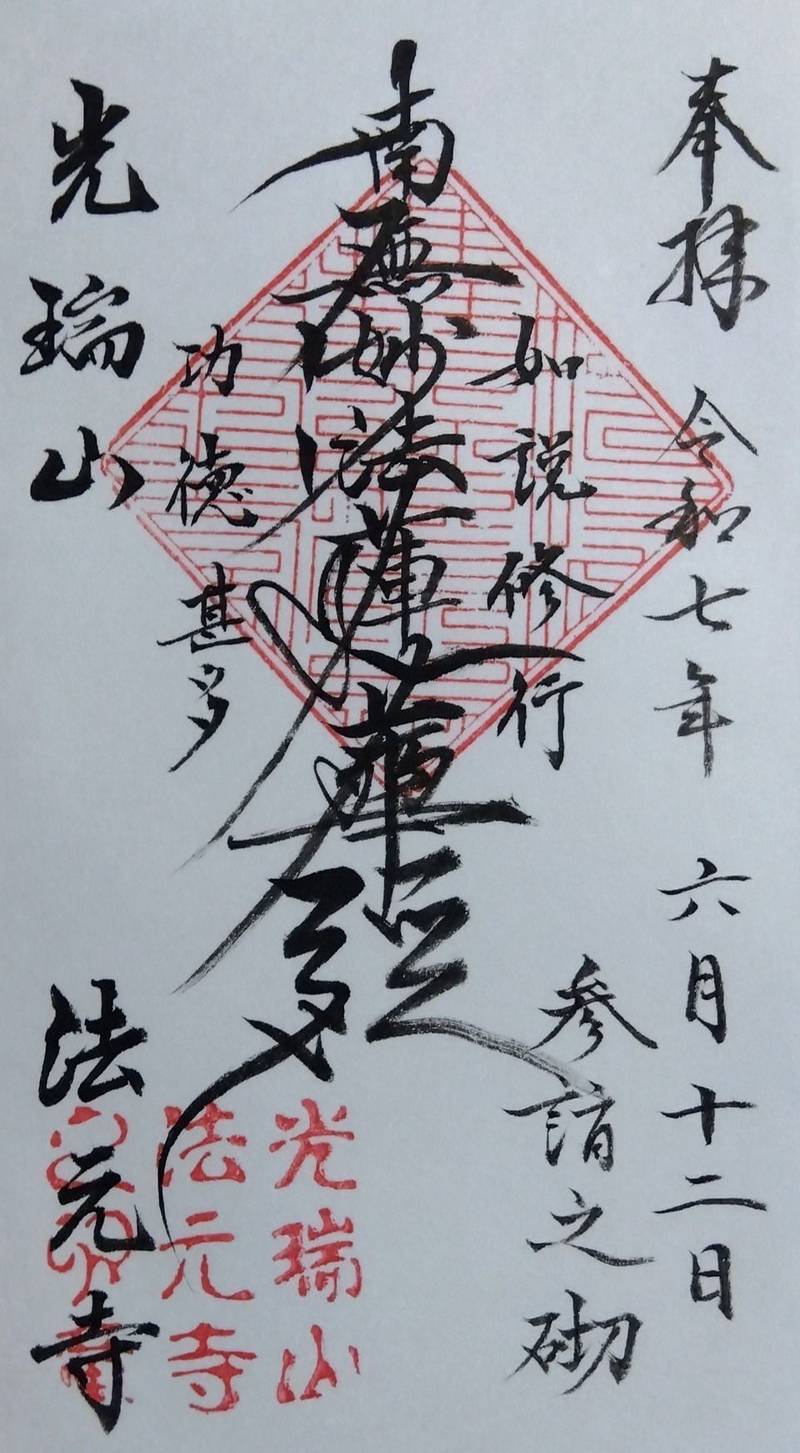 奉拝 令和七年 六月十二日
参詣之砌
如説修行
南無妙法蓮華経
功徳甚多
光瑞山
法元寺
光瑞山
法元寺